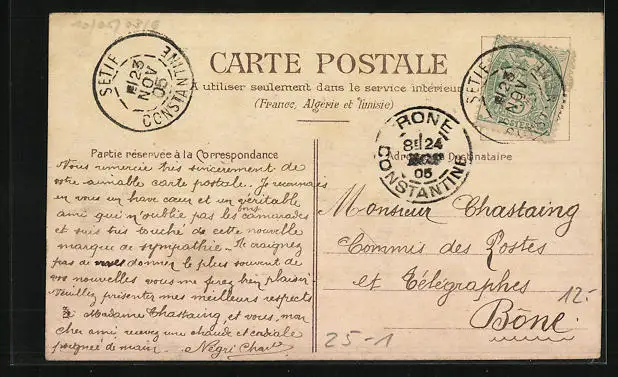 CARTE POSTALE
A utiliser seulement dans le service intérieur
(France, Algérie et Tunisie)
SETIF
23
NOV
05
CONSTANTINE
SETIF
23
NOV
05
BONE
8E 24
05
CONSTANTINE
Partie réservée à la Correspondance
Destinataire
Vous remercie très sincèrement de
votre aimable carte postale. Je reconnais
en vous un brave cœur et un véritable
ami qui n'oublie pas les bons camarades
et suis très touché de cette nouvelle
marque de sympathie. Ne craignez
pas de donner le plus souvent de
vos nouvelles vous me ferez bien plaisir.
Veuillez présenter mes meilleurs respects
à Madame Chastaing, et vous, mon
cher ami, recevez une chaude et cordiale
poignée de main. Négri
Monsieur Chastaing
Commis des Postes
et Télégraphes
Bône.
12.-
25-1